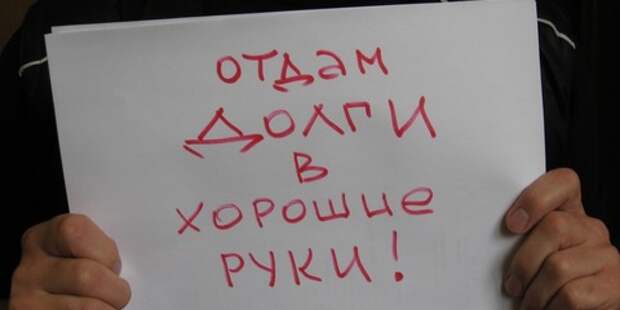 ОТДАМ
ДОЛГИ
В
ХОРОШИЕ
РУКИ!